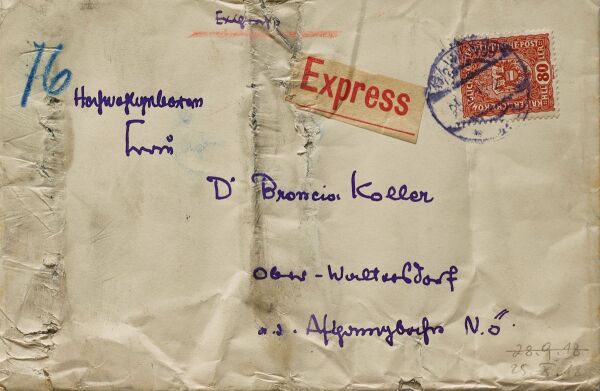 Express
76
Express
80
Hochwohlgeboren
Frau
Dr Broncia Koller
Ober-Waltersdorf
a. d. Aspangbahn N.Ö.
28.9.18
25 X. 18